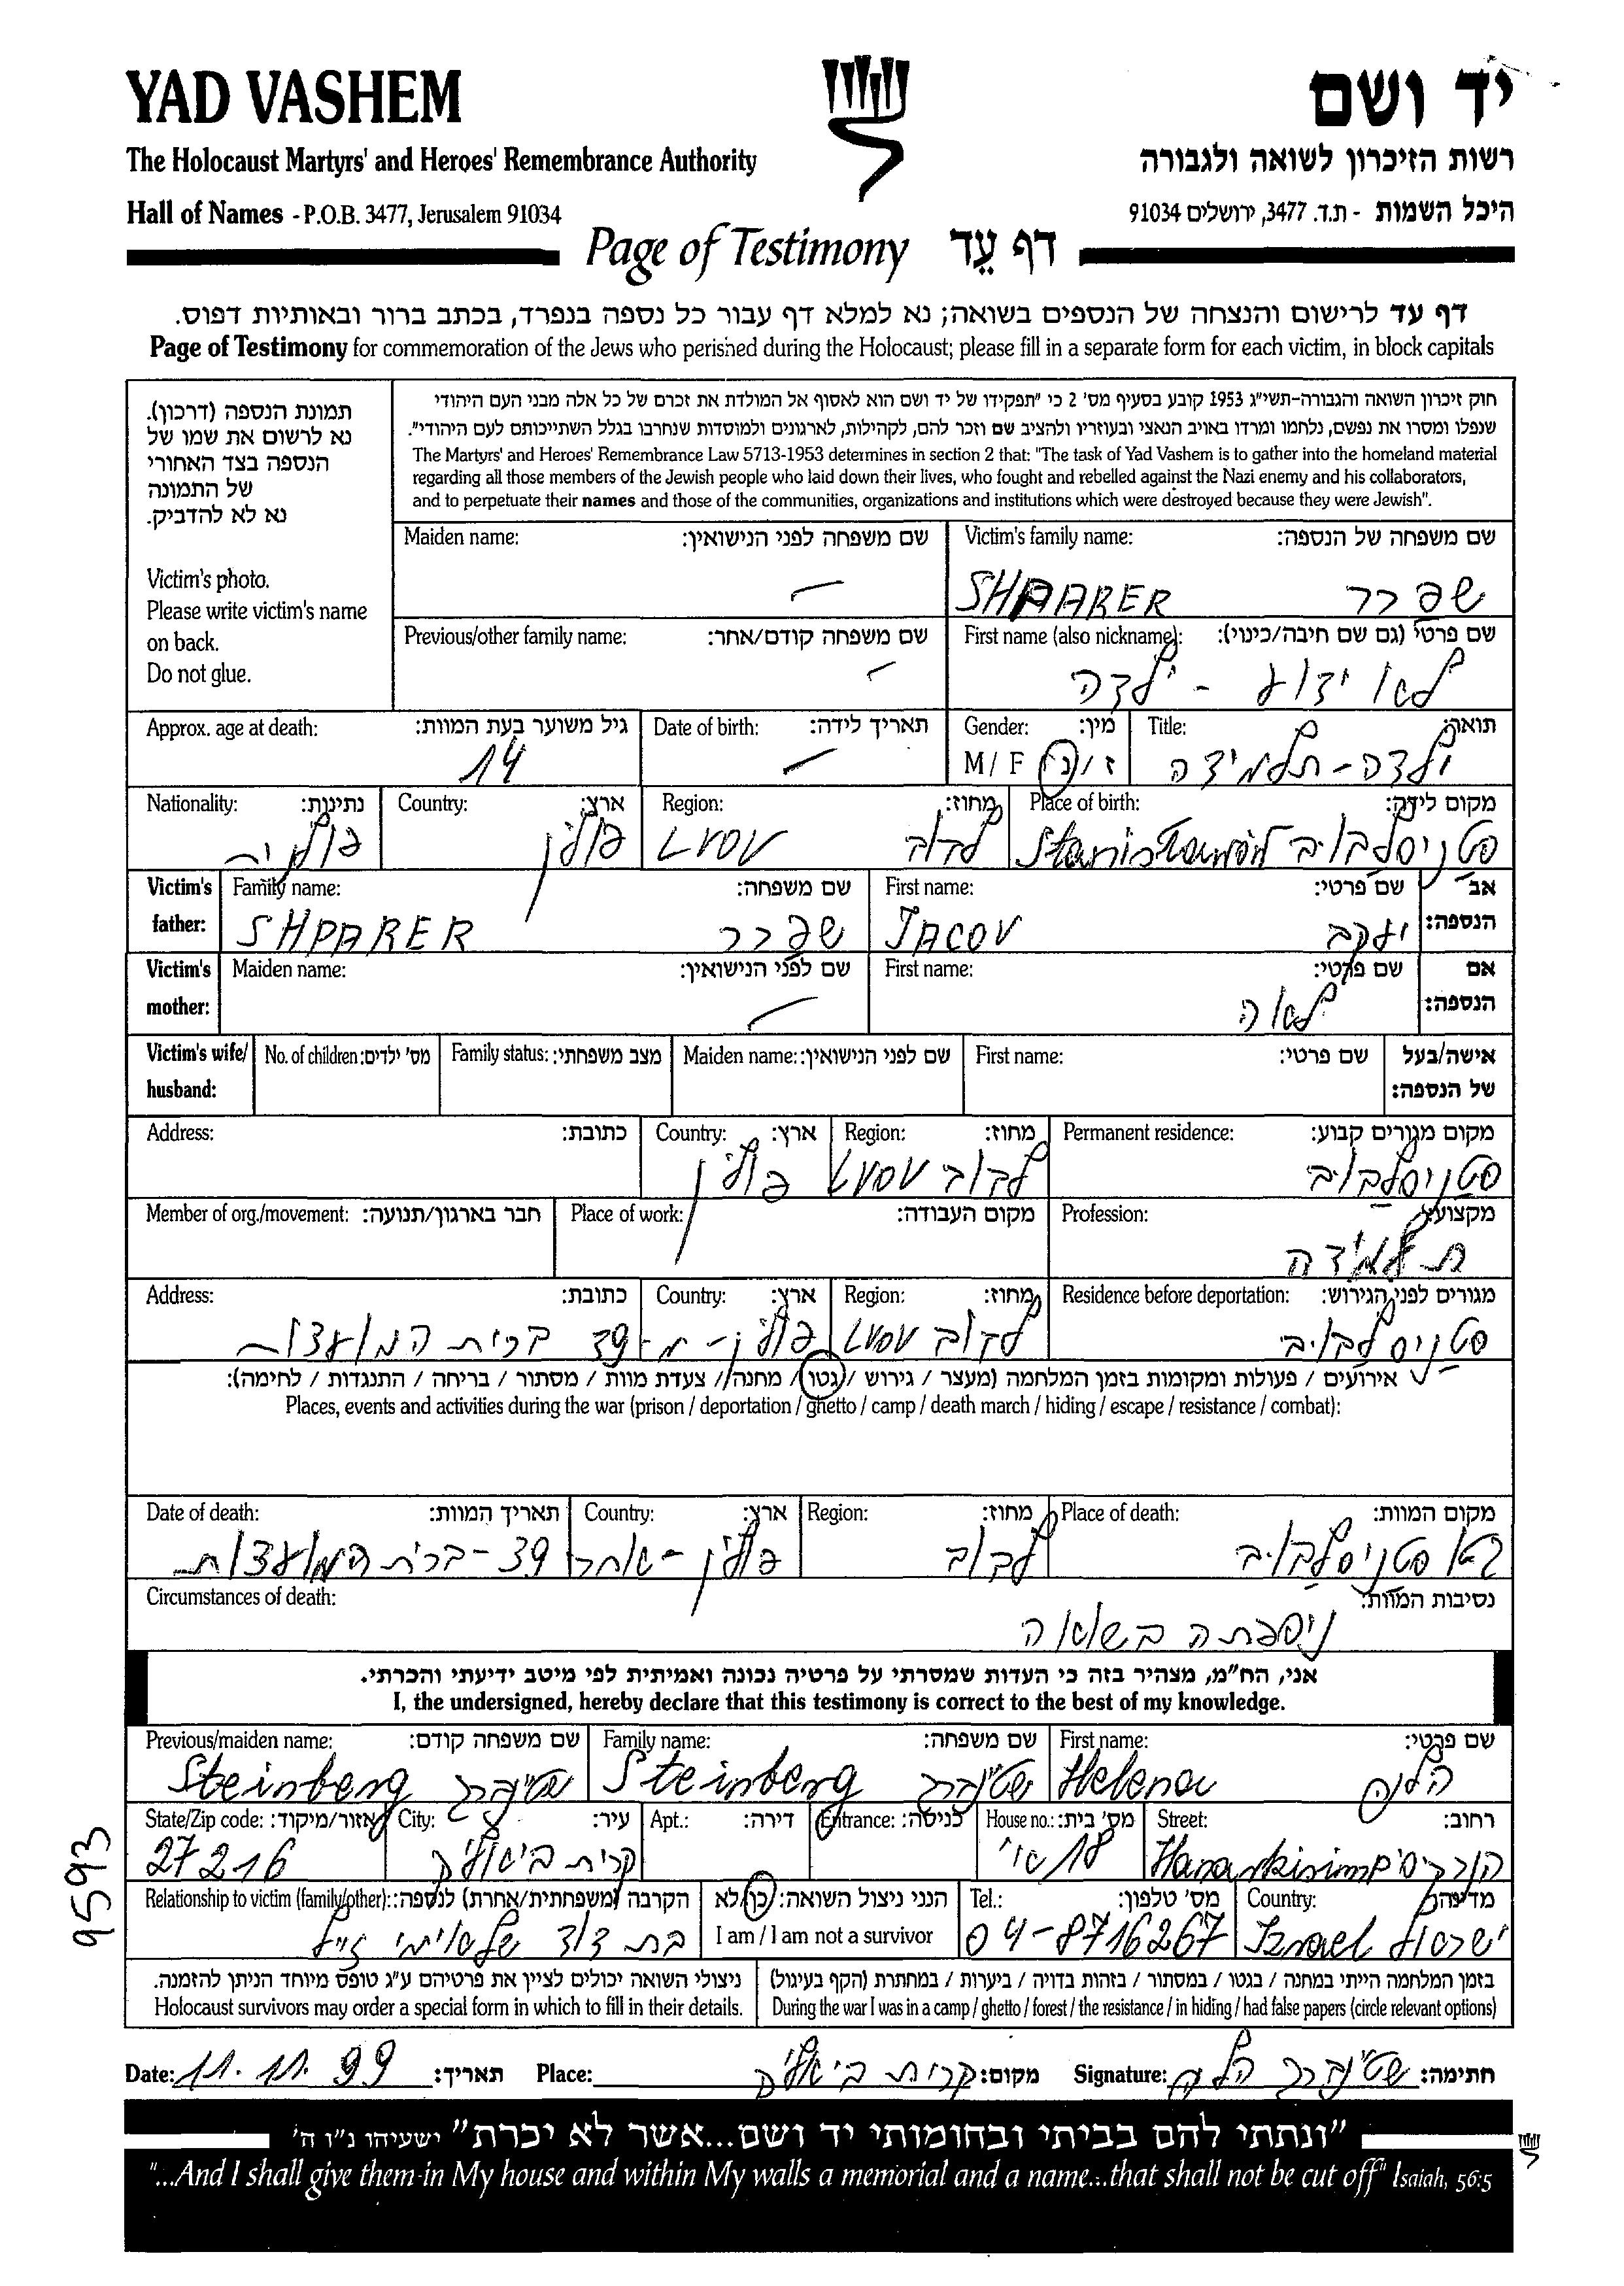 YAD VASHEM
יד ושם
The Holocaust Martyrs' and Heroes' Remembrance Authority
רשות הזיכרון לשואה ולגבורה
Hall of Names - P.O.B. 3477, Jerusalem 91034
היכל השמות - ת.ד. 3477, ירושלים 91034
Page of Testimony דף עֵד
דף עד לרישום והנצחה של הנספים בשואה; נא למלא דף עבור כל נספה בנפרד, בכתב ברור ובאותיות דפוס.
Page of Testimony for commemoration of the Jews who perished during the Holocaust; please fill in a separate form for each victim, in block capitals
תמונת הנספה (דרכון).
נא לרשום את שמו של
הנספה בצד האחורי
של התמונה
נא לא להדביק.
Victim's photo.
Please write victim's name
on back.
Do not glue.
חוק זיכרון השואה והגבורה-תשי"ג 1953 קובע בסעיף מס' 2 כי "תפקידו של יד ושם הוא לאסוף אל המולדת את זכרם של כל אלה מבני העם היהודי
שנפלו ומסרו את נפשם, נלחמו ומרדו באויב הנאצי ובעוזריו ולהציב שם וזכר להם, לקהילות, לארגונים ולמוסדות שנחרבו בגלל השתייכותם לעם היהודי".
The Martyrs' and Heroes' Remembrance Law 5713-1953 determines in section 2 that: "The task of Yad Vashem is to gather into the homeland material
regarding all those members of the Jewish people who laid down their lives, who fought and rebelled against the Nazi enemy and his collaborators,
and to perpetuate their names and those of the communities, organizations and institutions which were destroyed because they were Jewish".
Victim's family name: שם משפחה של הנספה:
SHPARER שפרר
Maiden name: שם משפחה לפני הנישואין:
—
First name (also nickname): שם פרטי (גם שם חיבה/כינוי):
לא ידוע - ילדה
Previous/other family name: שם משפחה קודם/אחר:
—
Title: תואר:
ילדה-תלמידה
Gender: מין:
M / F ז / נ
Date of birth: תאריך לידה:
—
Approx. age at death: גיל משוער בעת המוות:
14
Place of birth: מקום לידה:
Stanisławów סטניסלבוב
Region: מחוז:
LVOV לבוב
Country: ארץ:
פולין
Nationality: נתינות:
פולניה
Victim's father: אב הנספה:
First name: שם פרטי:
JACOV יעקב
Family name: שם משפחה:
SHPARER שפרר
Victim's mother: אם הנספה:
First name: שם פרטי:
לאה
Maiden name: שם לפני הנישואין:
—
Victim's wife/ husband: אישה/בעל של הנספה:
First name: שם פרטי:
Maiden name: שם לפני הנישואין:
Family status: מצב משפחתי:
No. of children: מס' ילדים:
Permanent residence: מקום מגורים קבוע:
סטניסלבוב
Region: מחוז:
LVOV לבוב
Country: ארץ:
פולין
Address: כתובת:
Profession: מקצוע:
תלמידה
Place of work: מקום העבודה:
Member of org./movement: חבר בארגון/תנועה:
Residence before deportation: מגורים לפני הגירוש:
סטניסלבוב
Region: מחוז:
LVOV לבוב
Country: ארץ:
Address: כתובת:
פולין - מ-39 ברית המועצות
אירועים / פעולות ומקומות בזמן המלחמה (מעצר / גירוש / גטו / מחנה / צעדת מוות / מסתור / בריחה / התנגדות / לחימה):
Places, events and activities during the war (prison / deportation / ghetto / camp / death march / hiding / escape / resistance / combat):
Place of death: מקום המוות:
גטו סטניסלבוב
Region: מחוז:
לבוב
Country: ארץ:
Date of death: תאריך המוות:
פולין - אחרי 39 - ברית המועצות
Circumstances of death: נסיבות המוות:
ניספתה בשואה
אני, הח"מ, מצהיר בזה כי העדות שמסרתי על פרטיה נכונה ואמיתית לפי מיטב ידיעתי והכרתי.
I, the undersigned, hereby declare that this testimony is correct to the best of my knowledge.
First name: שם פרטי:
Helena הלנה
Family name: שם משפחה:
Steinberg שטינברג
Previous/maiden name: שם משפחה קודם:
Steinberg שטינברג
Street: רחוב:
House no.: מס' בית:
18
Entrance: כניסה:
Apt.: דירה:
City: עיר:
קרית ביאליק
State/Zip code: אזור/מיקוד:
27216
Country: מדינה:
Izrael ישראל
Tel.: מס' טלפון:
04-8716267
הנני ניצול השואה: כן/לא
I am / I am not a survivor
Relationship to victim (family/other): הקרבה (משפחתית/אחרת) לנספה:
בת דוד
בזמן המלחמה הייתי במחנה / בגטו / במסתור / בזהות בדויה / ביערות / במחתרת (הקף בעיגול)
During the war I was in a camp / ghetto / forest / the resistance / in hiding / had false papers (circle relevant options)
ניצולי השואה יכולים לציין את פרטיהם ע"ג טופס מיוחד הניתן להזמנה.
Holocaust survivors may order a special form in which to fill in their details.
Date: 11.11.99 תאריך: Place: קרית ביאליק מקום: Signature: שטינברג הלנה חתימה:
"ונתתי להם בביתי ובחומותי יד ושם...אשר לא יכרת" ישעיהו נ"ו ה'
"...And I shall give them in My house and within My walls a memorial and a name...that shall not be cut off" Isaiah, 56:5
9593